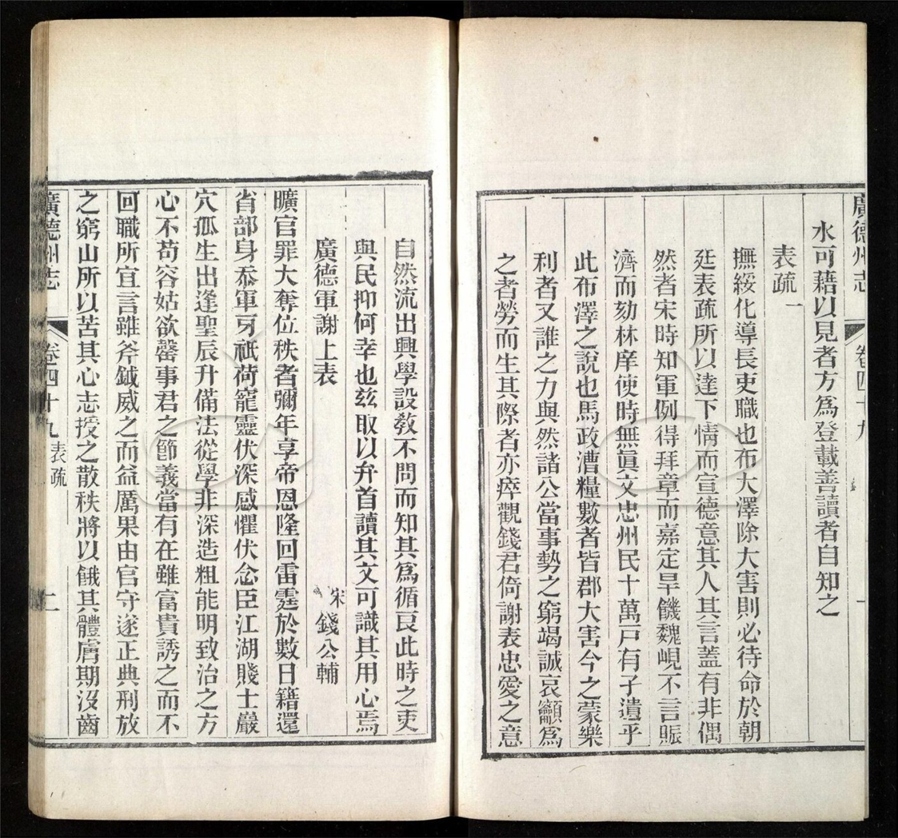 廣德州志 卷四十九 一
水可藉以見者方為登載善讀者自知之
表疏一
撫綏化導長吏職也布大澤除大害則必待命於朝
廷表疏所以達下情而宣德意其人其言蓋有非偶
然者宋時知軍例得拜章而嘉定旱饑魏峴不言賑
濟而劾林庠使時無眞文忠州民十萬戸有孑遺乎
此布澤之說也馬政漕糧數者皆郡大害今之蒙樂
利者又誰之力與然諸公當事勢之窮竭誠哀籲為
之者勞而生其際者亦瘁觀錢君倚謝表忠愛之意
自然流出興學設敎不問而知其為循良此時之吏
與民抑何幸也玆取以弁首讀其文可識其用心焉
廣德軍謝上表 宋 錢公輔
曠官罪大奪位秩者彌年享帝恩隆回雷霆於數日籍還
省部身忝軍牙祇荷寵靈伏深感懼伏念臣江湖賤士巖
穴孤生出逢聖辰升備法從學非深造粗能明致治之方
心不苟容姑欲罄事君之節義當有在雖富貴誘之而不
回職所宜言雖斧鉞威之而益厲果由官守遂正典刑放
之窮山所以苦其心志授之散秩將以餓其體膚期沒齒
廣德州志 卷四十九 表疏 二